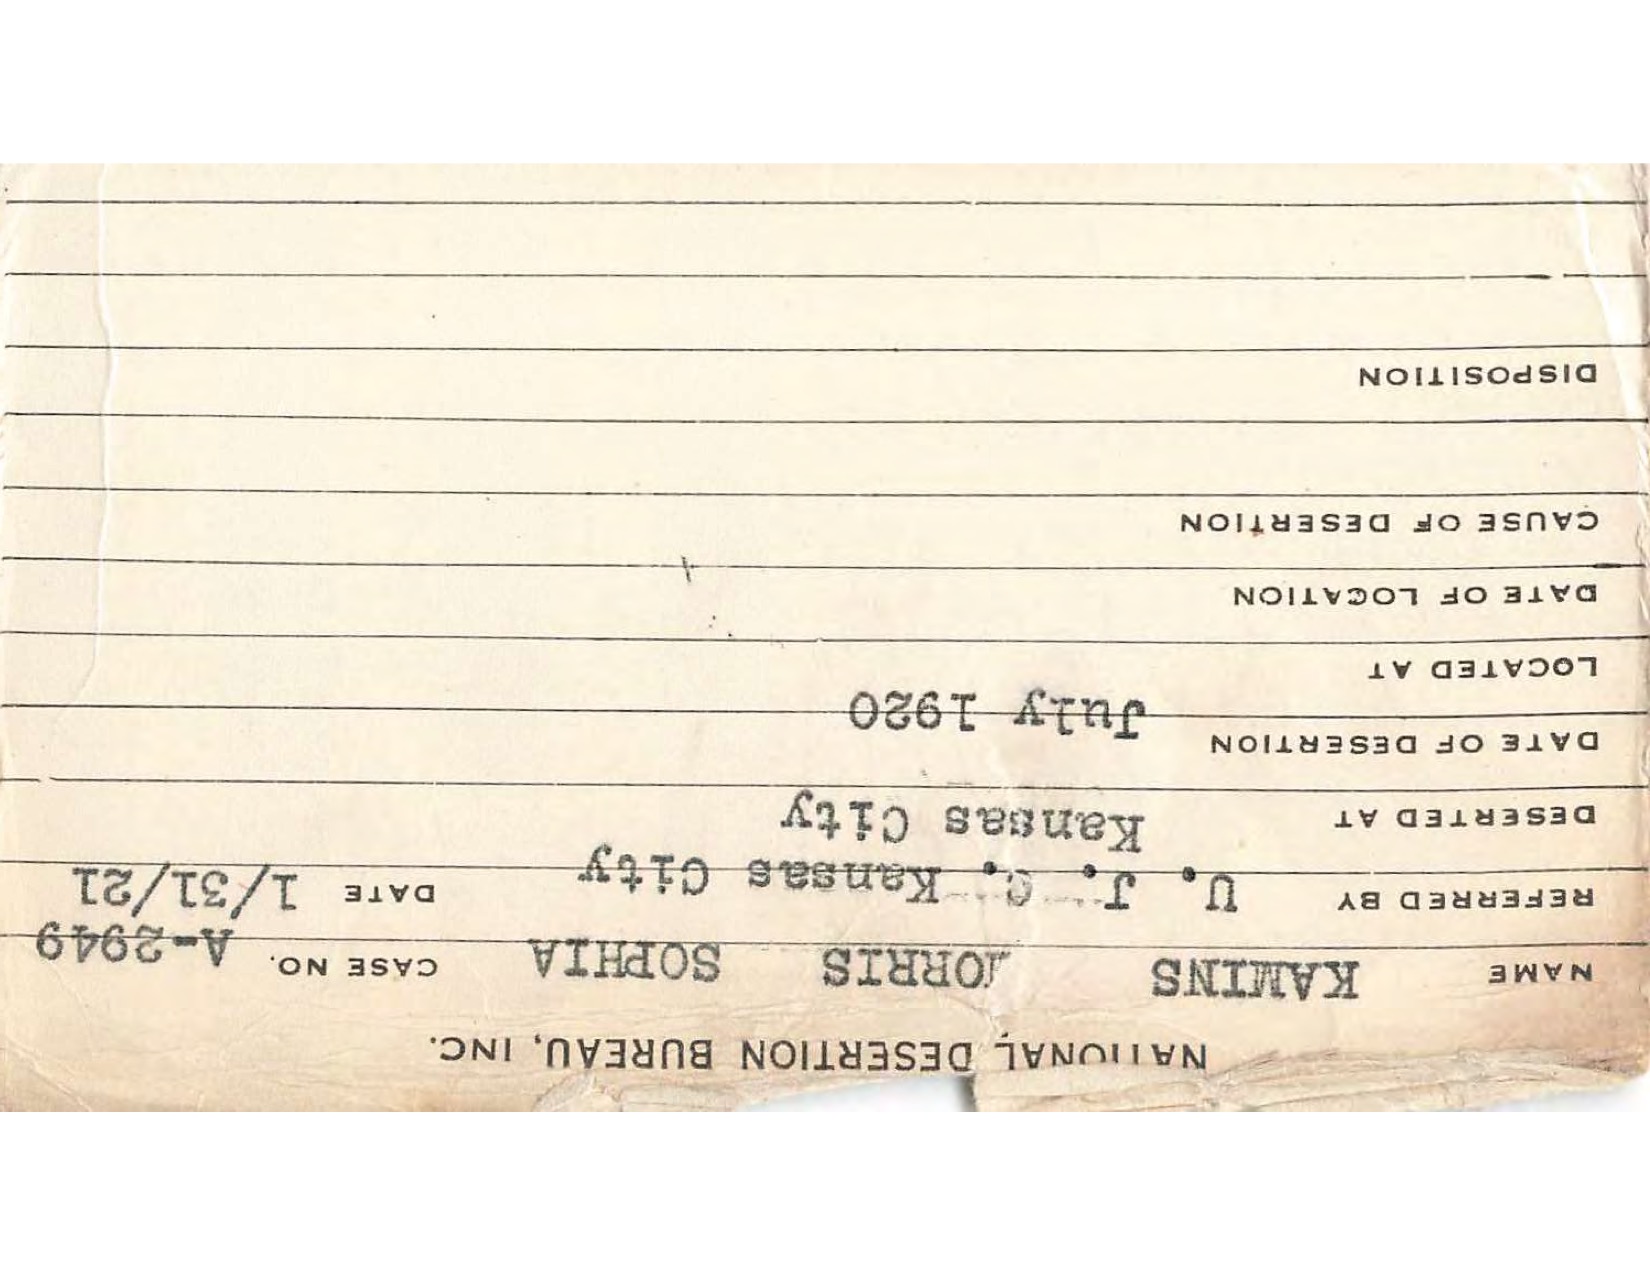 NATIONAL DESERTION BUREAU, INC.
NAME KAMINS MORRIS SOPHIA CASE NO. A-2949
REFERRED BY U. J. C. Kansas City DATE 1/31/21
DESERTED AT Kansas City
DATE OF DESERTION July 1920
LOCATED AT
DATE OF LOCATION
CAUSE OF DESERTION
DISPOSITION